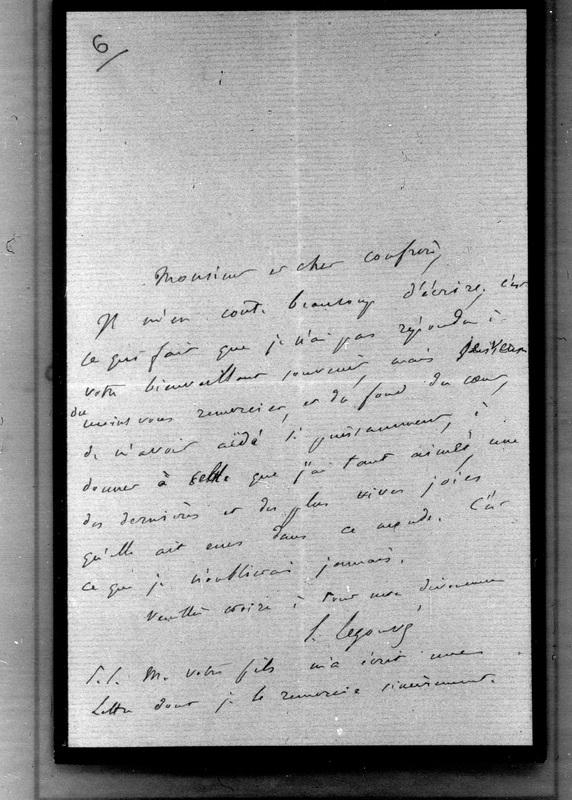 6
Monsieur et cher confrère,
Il m'en coute beaucoup d'écrire, c'est
ce qui fait que je n'ai pas répondu à
votre bienveillant souvenir, mais je veux
du moins vous remercier, et du fond du cœur,
de m'avoir aidé si puissamment, à
donner à celle que j'ai tant aimée, une
des dernières et des plus vives joies
qu'elle ait eues dans ce monde. C'est
ce que je n'oublierai jamais.
Veuillez croire à tout mon dévouement
E. Legouvé
P.S. M. votre fils m'a écrit une
lettre dont je le remercie sincèrement.